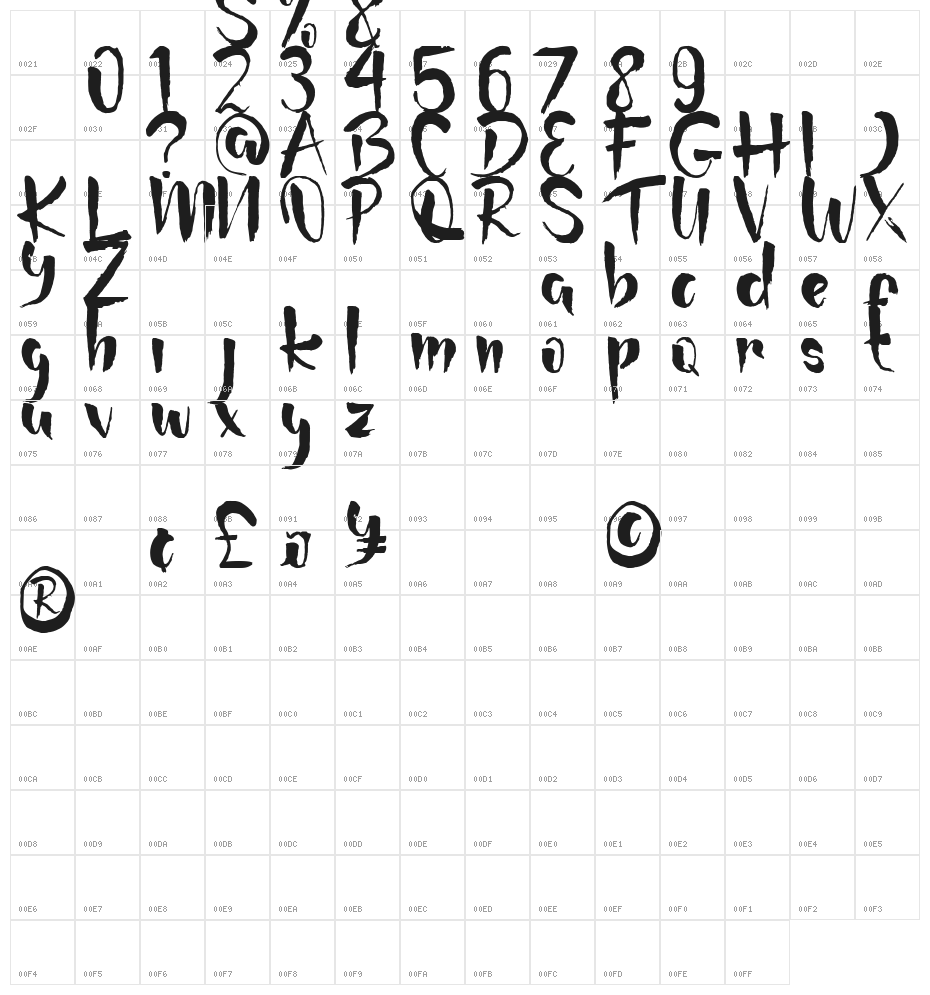 $ % &
0021 0022 0024 0025 0029 002B 002C 002D 002E
0 1 2 3 4 5 6 7 8 9
002F 0030 003C
? @ A B C D E F G H I J
K L M N O P Q R S T U V W X
004C 004D 004E 004F 0050 0051 0052 0053 0055 0056 0057 0058
y Z a b c d e f
0059 005B 005C 005F 0060 0061 0062 0063 0064 0065
g h i j k l m n o p q r s t
0067 0068 0069 006A 006B 006C 006D 006E 006F 0070 0071 0072 0073 0074
u v w x y z
0075 0076 0077 0078 0079 007A 007B 007C 007D 007E 0080 0082 0084 0085
0086 0087 0088 0091 0093 0094 0095 0097 0098 0099 009B
¢ £ ¤ ¥ ©
00A1 00A2 00A3 00A4 00A5 00A6 00A7 00A8 00A9 00AA 00AB 00AC 00AD
®
00AE 00AF 00B0 00B1 00B2 00B3 00B4 00B5 00B6 00B7 00B8 00B9 00BA 00BB
00BC 00BD 00BE 00BF 00C0 00C1 00C2 00C3 00C4 00C5 00C6 00C7 00C8 00C9
00CA 00CB 00CC 00CD 00CE 00CF 00D0 00D1 00D2 00D3 00D4 00D5 00D6 00D7
00D8 00D9 00DA 00DB 00DC 00DD 00DE 00DF 00E0 00E1 00E2 00E3 00E4 00E5
00E6 00E7 00E8 00E9 00EA 00EB 00EC 00ED 00EE 00EF 00F0 00F1 00F2 00F3
00F4 00F5 00F6 00F7 00F8 00F9 00FA 00FB 00FC 00FD 00FE 00FF